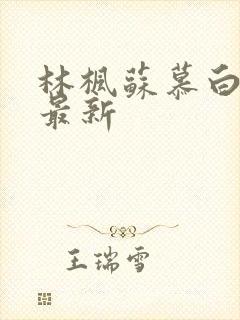 林楓蘇慕白
最新
王瑞雪